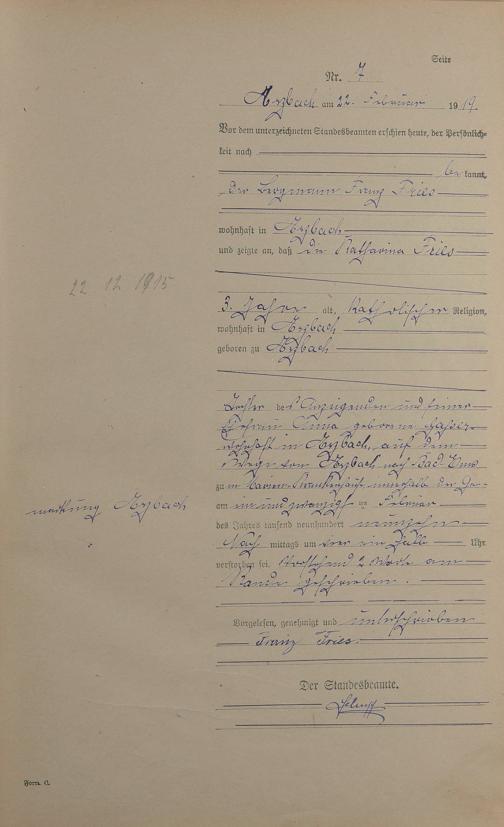 Seite
Nr. 7
Arzbach am 22. Februar 1919.
Vor dem unterzeichneten Standesbeamten erschien heute, der Persönlich-
keit nach
bekannt,
der Bergmann Franz Fries
wohnhaft in Arzbach
und zeigte an, daß die Katharina Fries
22 12 1915
3 Jahre alt, Katholischer Religion,
wohnhaft in Arzbach
geboren zu Arzbach
Tochter des Anzeigenden und seiner
Ehefrau Anna geborene
wohnhaft in Arzbach, auf dem
Wege von Arzbach nach Bad-Ems
zum Marien-Krankenhause innerhalb der Ge-
markung Arzbach
am einundzwanzigsten Februar
des Jahres tausend neunhundert neunzehn
Nach mittags um ein halb Uhr
verstorben sei. Vorstehend 2 Worte am
Rande geschrieben.
Vorgelesen, genehmigt und unterschrieben
Franz Fries
Der Standesbeamte.
Form. C.